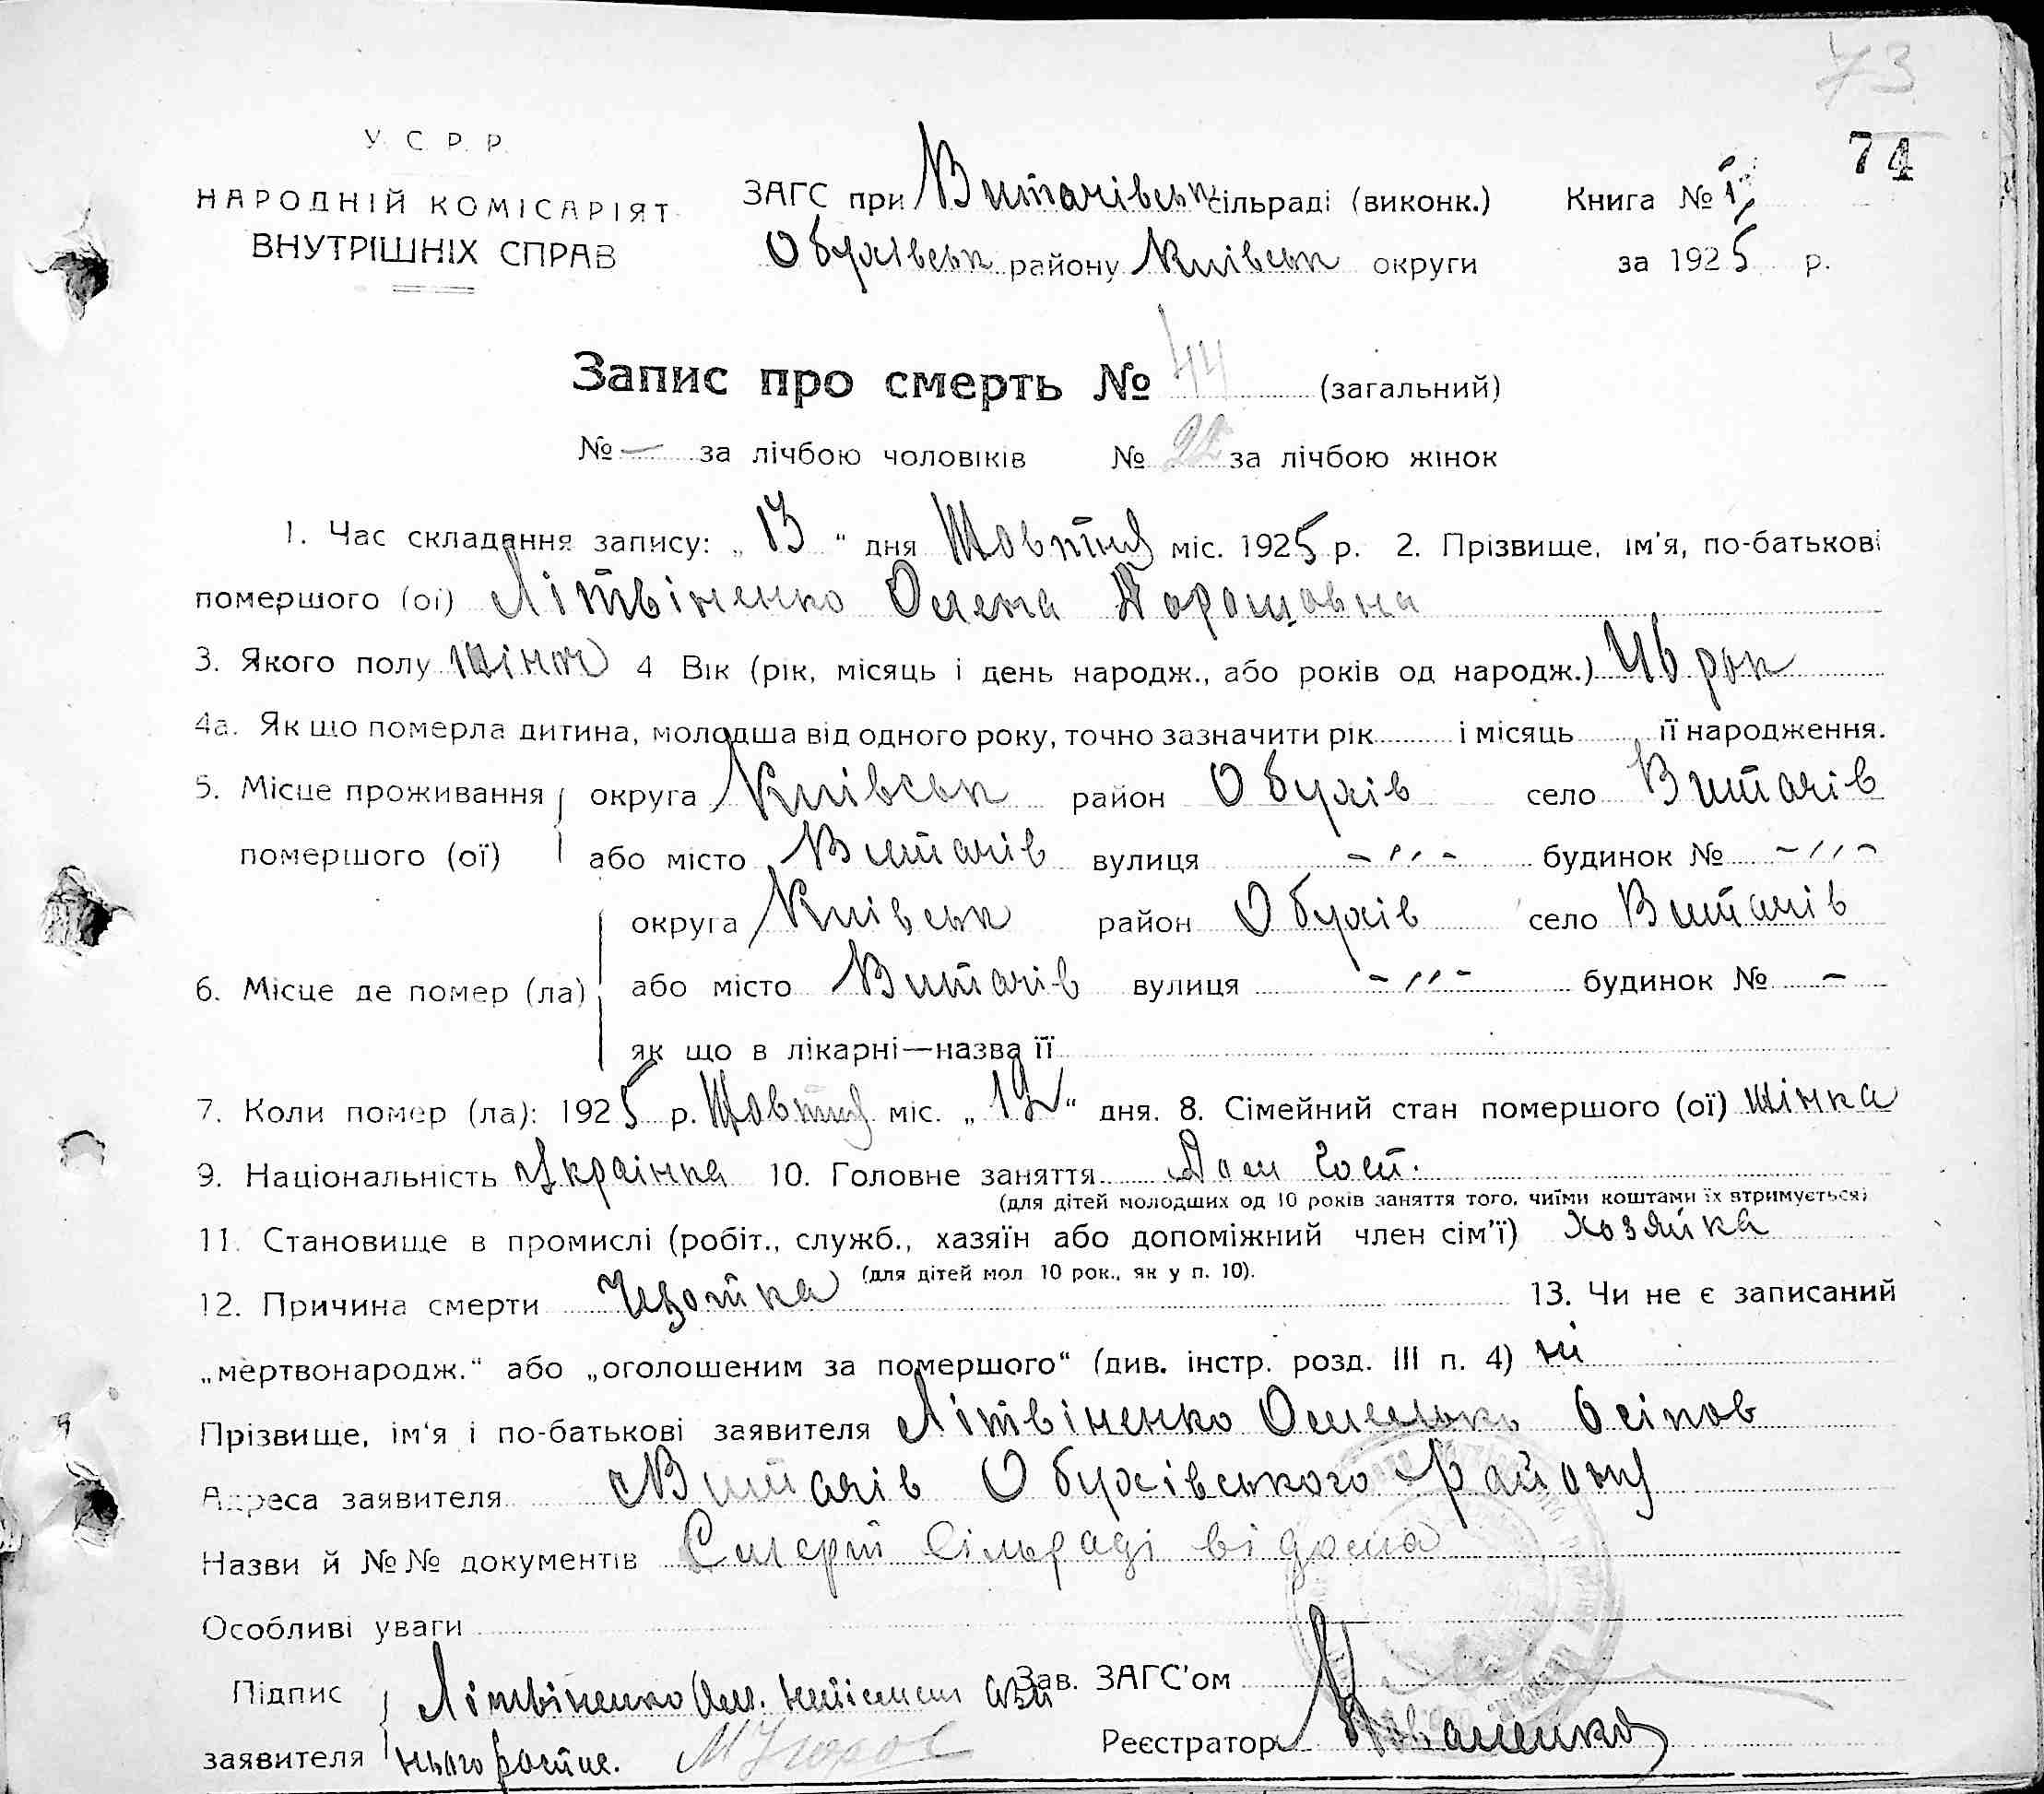 73
74
У. С. Р. Р.
НАРОДНІЙ КОМІСАРІЯТ
ВНУТРІШНІХ СПРАВ
ЗАГС при Витачівськ сільраді (виконк.) Книга № 1
Обухівськ району Київськ округи за 1925 р.
Запис про смерть № 44 (загальний)
№ — за лічбою чоловіків № 22 за лічбою жінок
1. Час складання запису: „13“ дня Жовтня міс. 1925 р. 2. Прізвище, ім'я, по-батькові
помершого (ої) Літвіненко Олена
3. Якого полу жіноч 4 Вік (рік, місяць і день народж., або років од народж.) 46 рок
4а. Як що померла дитина, молодша від одного року, точно зазначити рік і місяць її народження.
5. Місце проживання округа Київськ район Обухів село Витачів
помершого (ої) або місто Витачів вулиця -〃- будинок № -〃-
округа Київськ район Обухів село Витачів
6. Місце де помер (ла) або місто Витачів вулиця -〃- будинок № -
як що в лікарні—назва її
7. Коли помер (ла): 1925 р. Жовтня міс. „12“ дня. 8. Сімейний стан помершого (ої) жінка
9. Національність Украінка 10. Головне заняття Дом Госп.
(для дітей молодших од 10 років заняття того, чиїми коштами їх втримується)
11. Становище в промислі (робіт., служб., хазяїн або допоміжний член сім'ї) хозяйка
(для дітей мол. 10 рок., як у п. 10).
12. Причина смерти 13. Чи не є записаний
„мертвонародж.“ або „оголошеним за помершого“ (див. інстр. розд. III п. 4) ні
Прізвище, ім'я і по-батькові заявителя Літвіненко Омелько Осіпов
Адреса заявителя Витачів Обухівського Району
Назви й №№ документів Смерть Сільраді відома
Особливі уваги
Підпис Літвіненко Ом. неписьмен а за Зав. ЗАГС'ом
заявителя нього роспис. Реєстратор